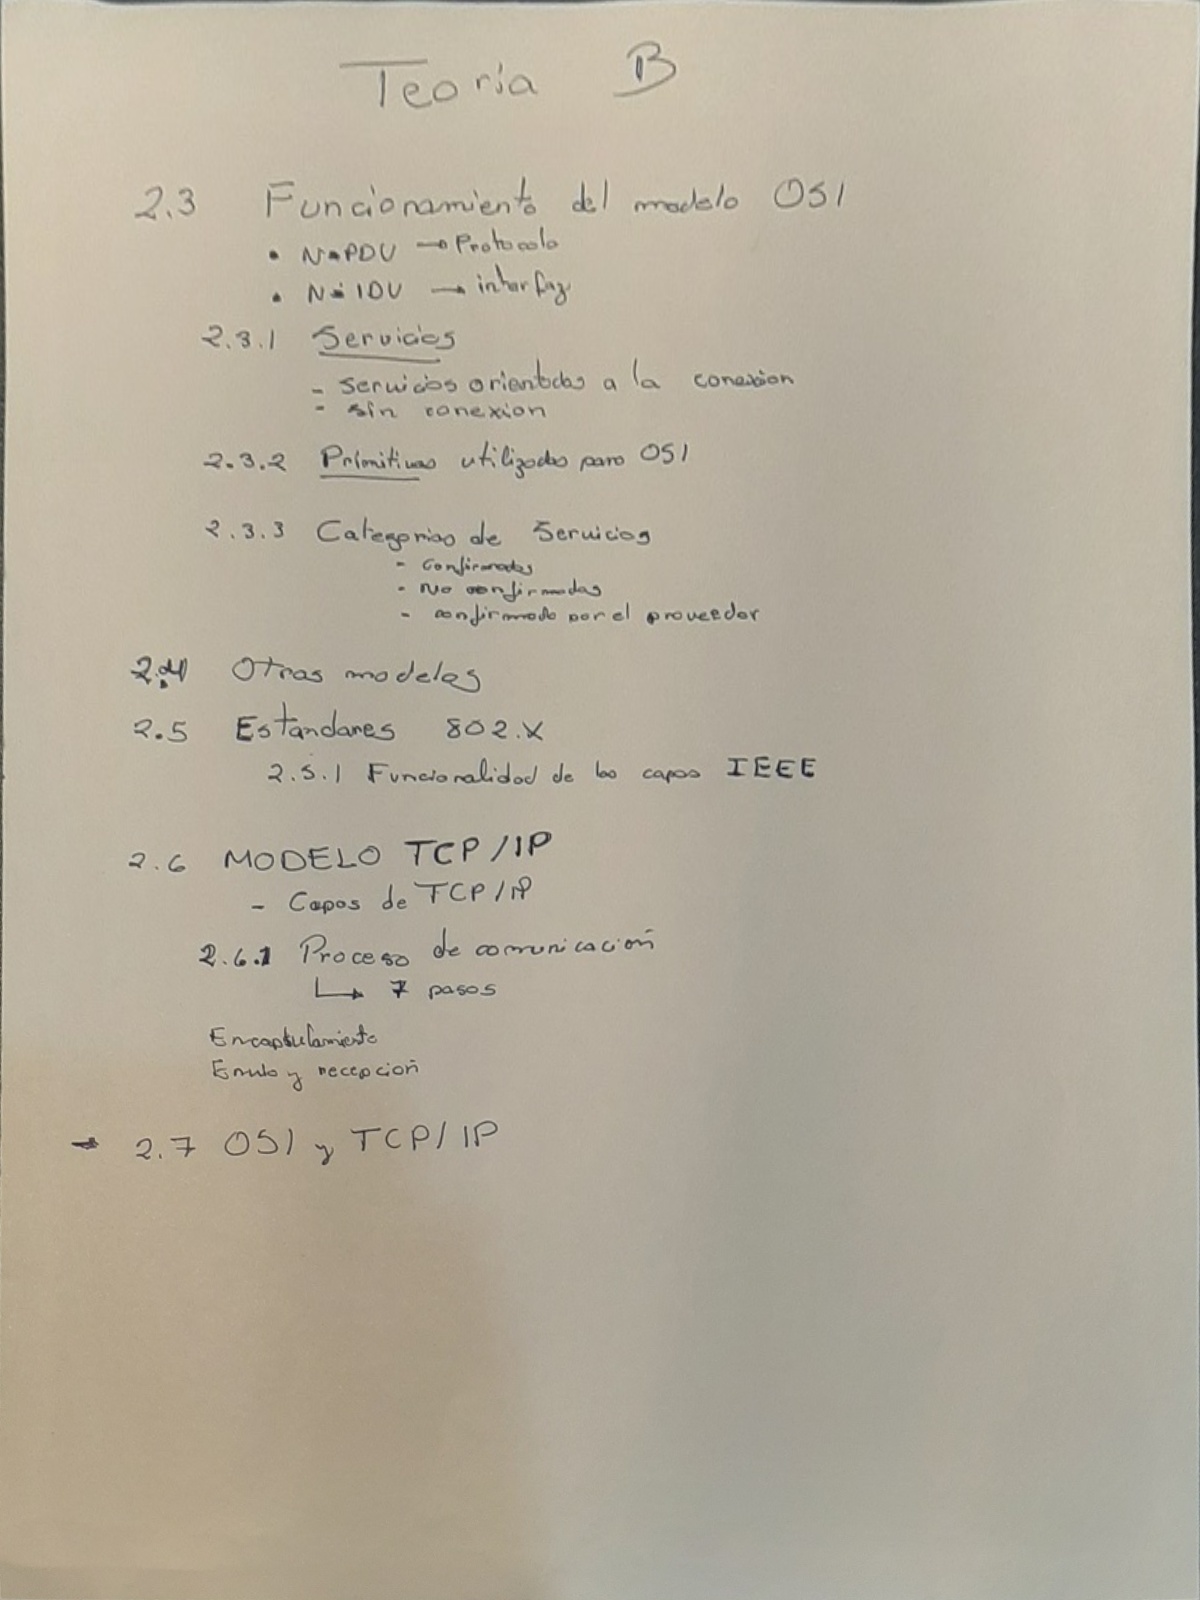 Teoria B
2.3 Funcionamiento del modelo OSI
• N-PDU → Protocolo
• N-IDU → interfaz
2.3.1 Servicios
- Servicios orientados a la conexion
- sin conexion
2.3.2 Primitivas utilizadas para OSI
2.3.3 Categorias de Servicios
- Confirmados
- No confirmados
- confirmado por el proveedor
2.4 Otros modelos
2.5 Estandares 802.X
2.5.1 Funcionalidad de las capas IEEE
2.6 MODELO TCP/IP
- Capas de TCP/IP
2.6.1 Proceso de comunicación
↳ 7 pasos
Encapsulamiento
Envio y recepción
→ 2.7 OSI y TCP/IP